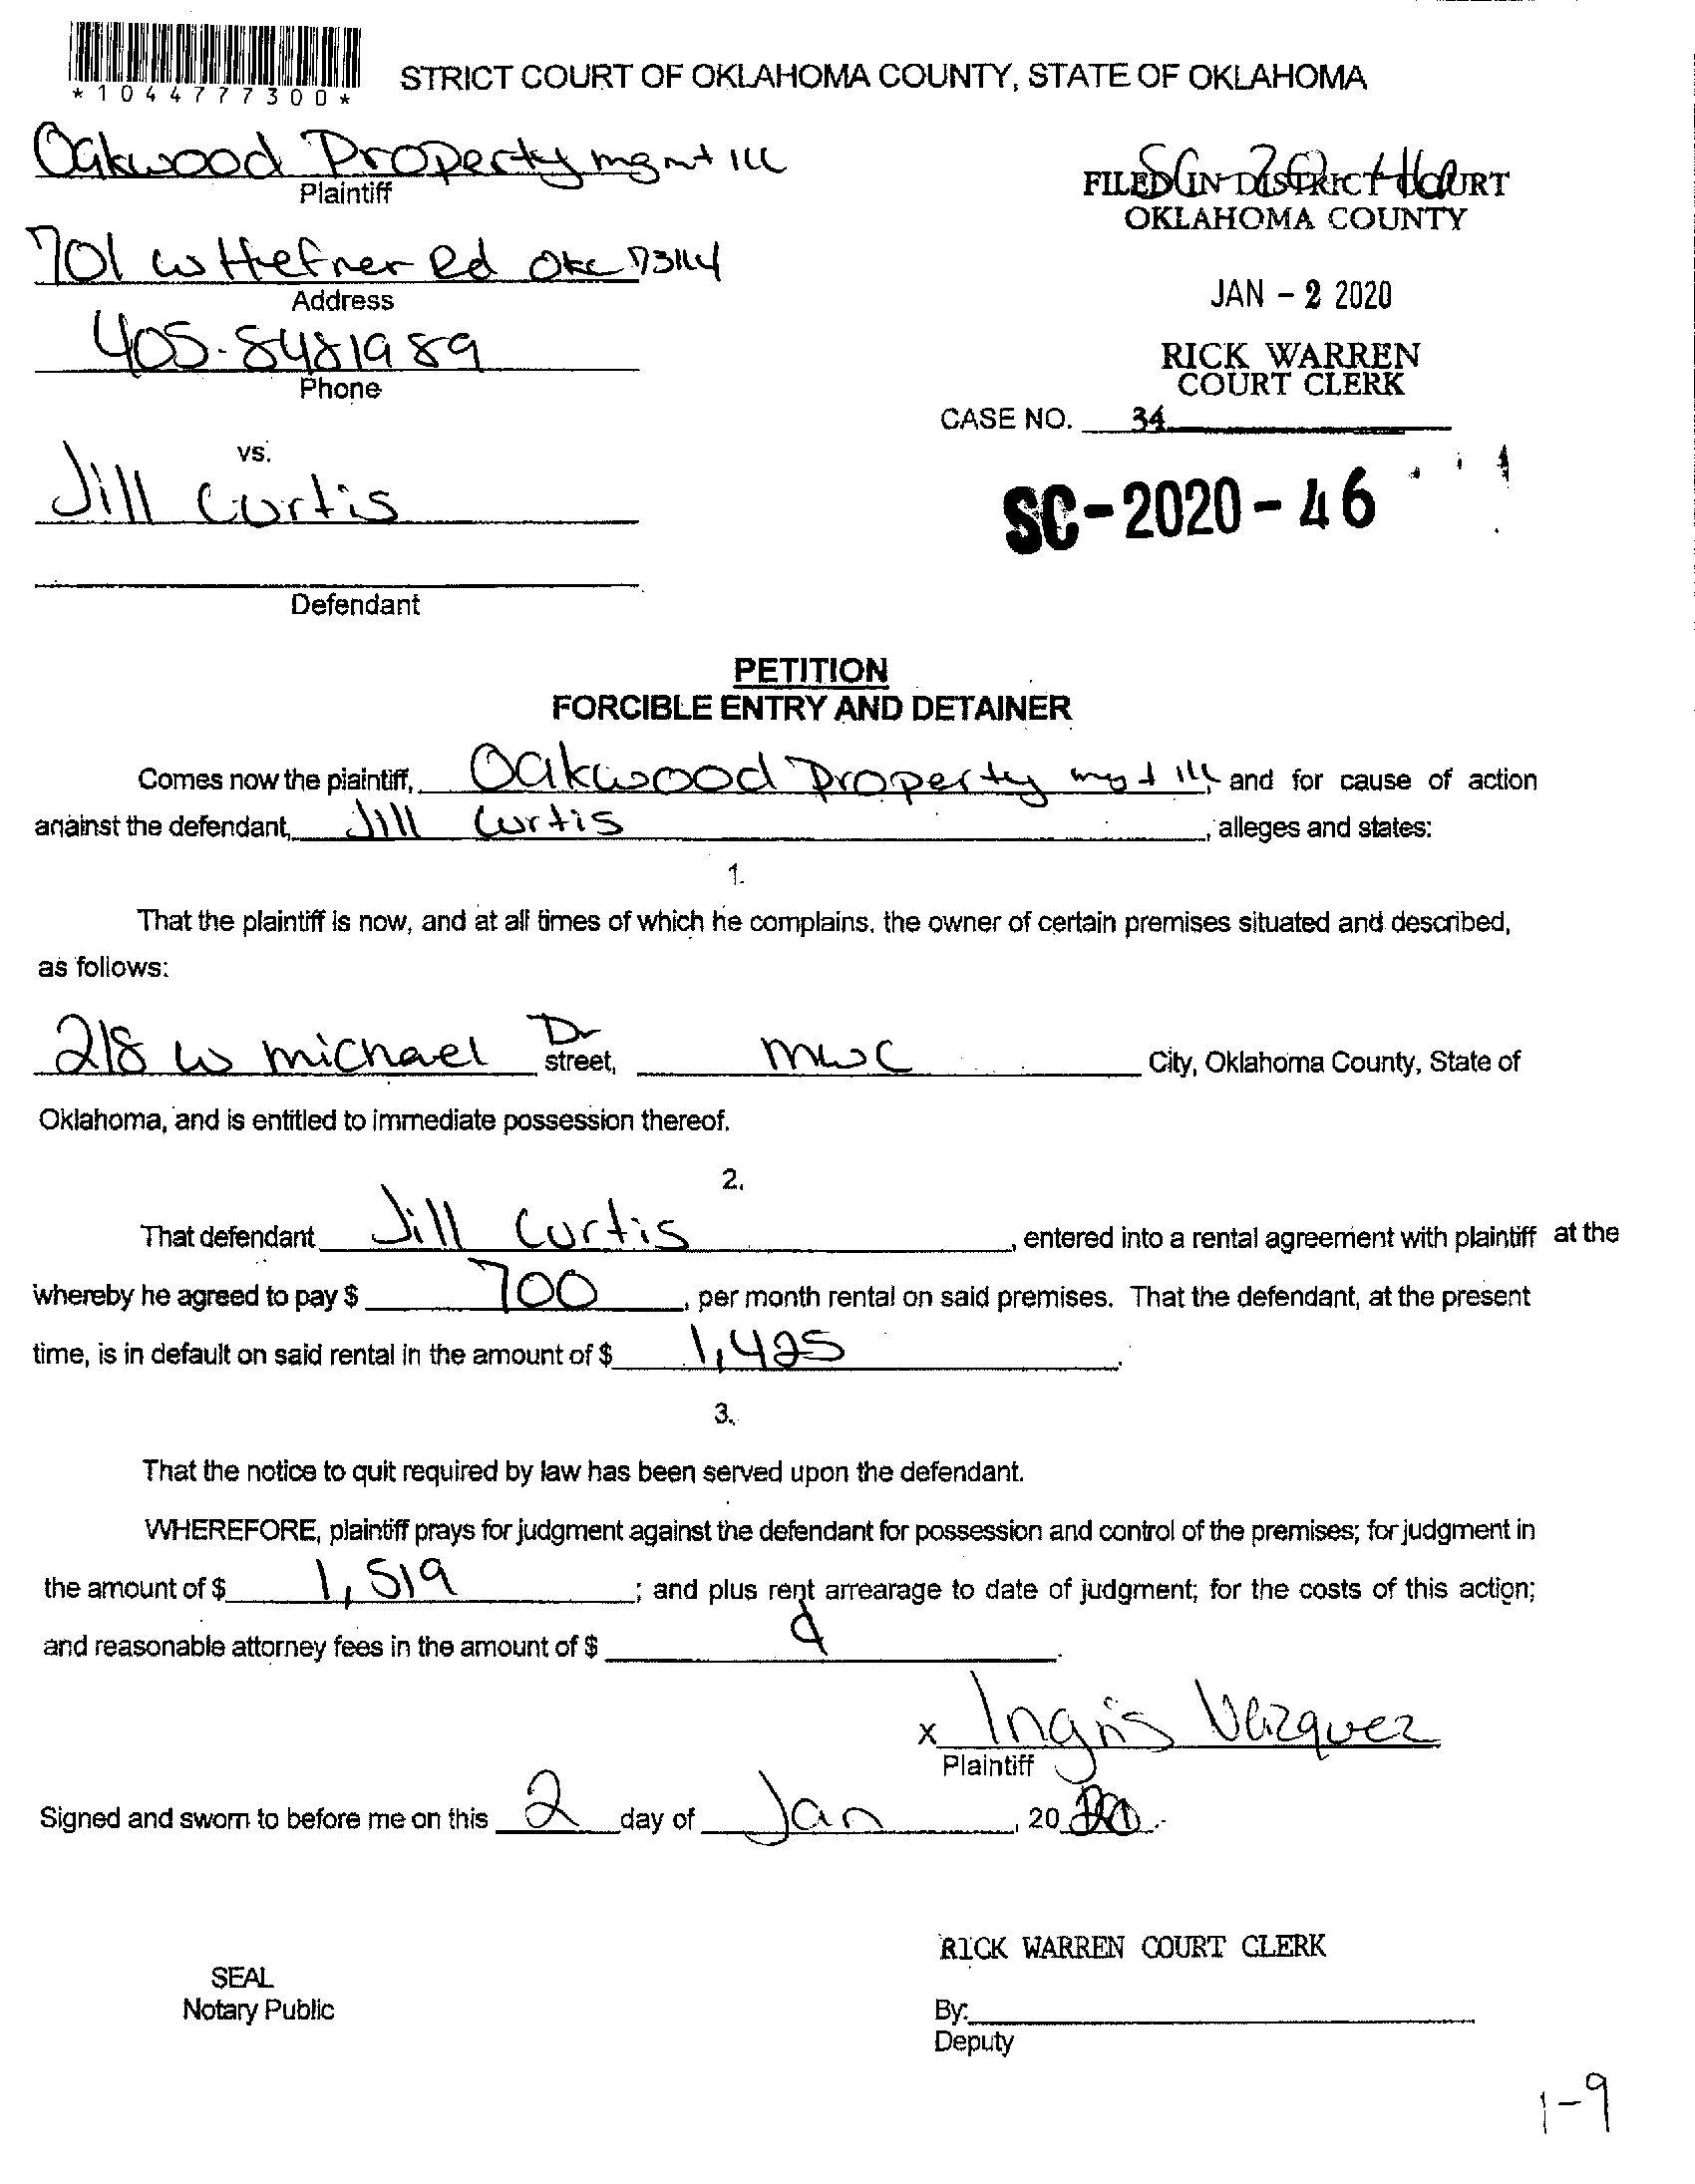 *1044777300*
STRICT COURT OF OKLAHOMA COUNTY, STATE OF OKLAHOMA
Oakwood Property mgmt
Plaintiff
701 W Hefner Rd OKC 73114
Address
405-8481989
Phone
vs.
Jill Curtis
Defendant
FILED IN DISTRICT COURT
OKLAHOMA COUNTY
JAN - 2 2020
RICK WARREN
COURT CLERK
CASE NO. 34
SC-2020-46
PETITION
FORCIBLE ENTRY AND DETAINER
Comes now the plaintiff, Oakwood Property and for cause of action
against the defendant, Jill Curtis, alleges and states:
1.
That the plaintiff is now, and at all times of which he complains, the owner of certain premises situated and described,
as follows:
218 W Michael Dr street, MWC City, Oklahoma County, State of
Oklahoma, and is entitled to immediate possession thereof.
2.
That defendant Jill Curtis, entered into a rental agreement with plaintiff at the
whereby he agreed to pay $ 700, per month rental on said premises. That the defendant, at the present
time, is in default on said rental in the amount of $ 1,425.
3.
That the notice to quit required by law has been served upon the defendant.
WHEREFORE, plaintiff prays for judgment against the defendant for possession and control of the premises; for judgment in
the amount of $ 1,519; and plus rent arrearage to date of judgment; for the costs of this action;
and reasonable attorney fees in the amount of $
x Ingris Vazquez
Plaintiff
Signed and sworn to before me on this 2 day of Jan, 2020.
RICK WARREN COURT CLERK
SEAL
Notary Public
By:
Deputy
1-9